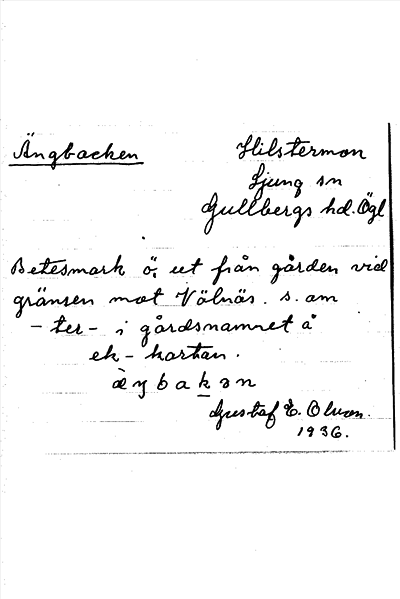 Ängbacken
Hilstermon
Ljung sn
Gullbergs hd. Ögl
Betesmark ö. ut från gården vid
gränsen mot Välnäs. s. om
- ter - i gårdsnamnet å
ek - kartan.
Gustaf E. Olson.
1936.